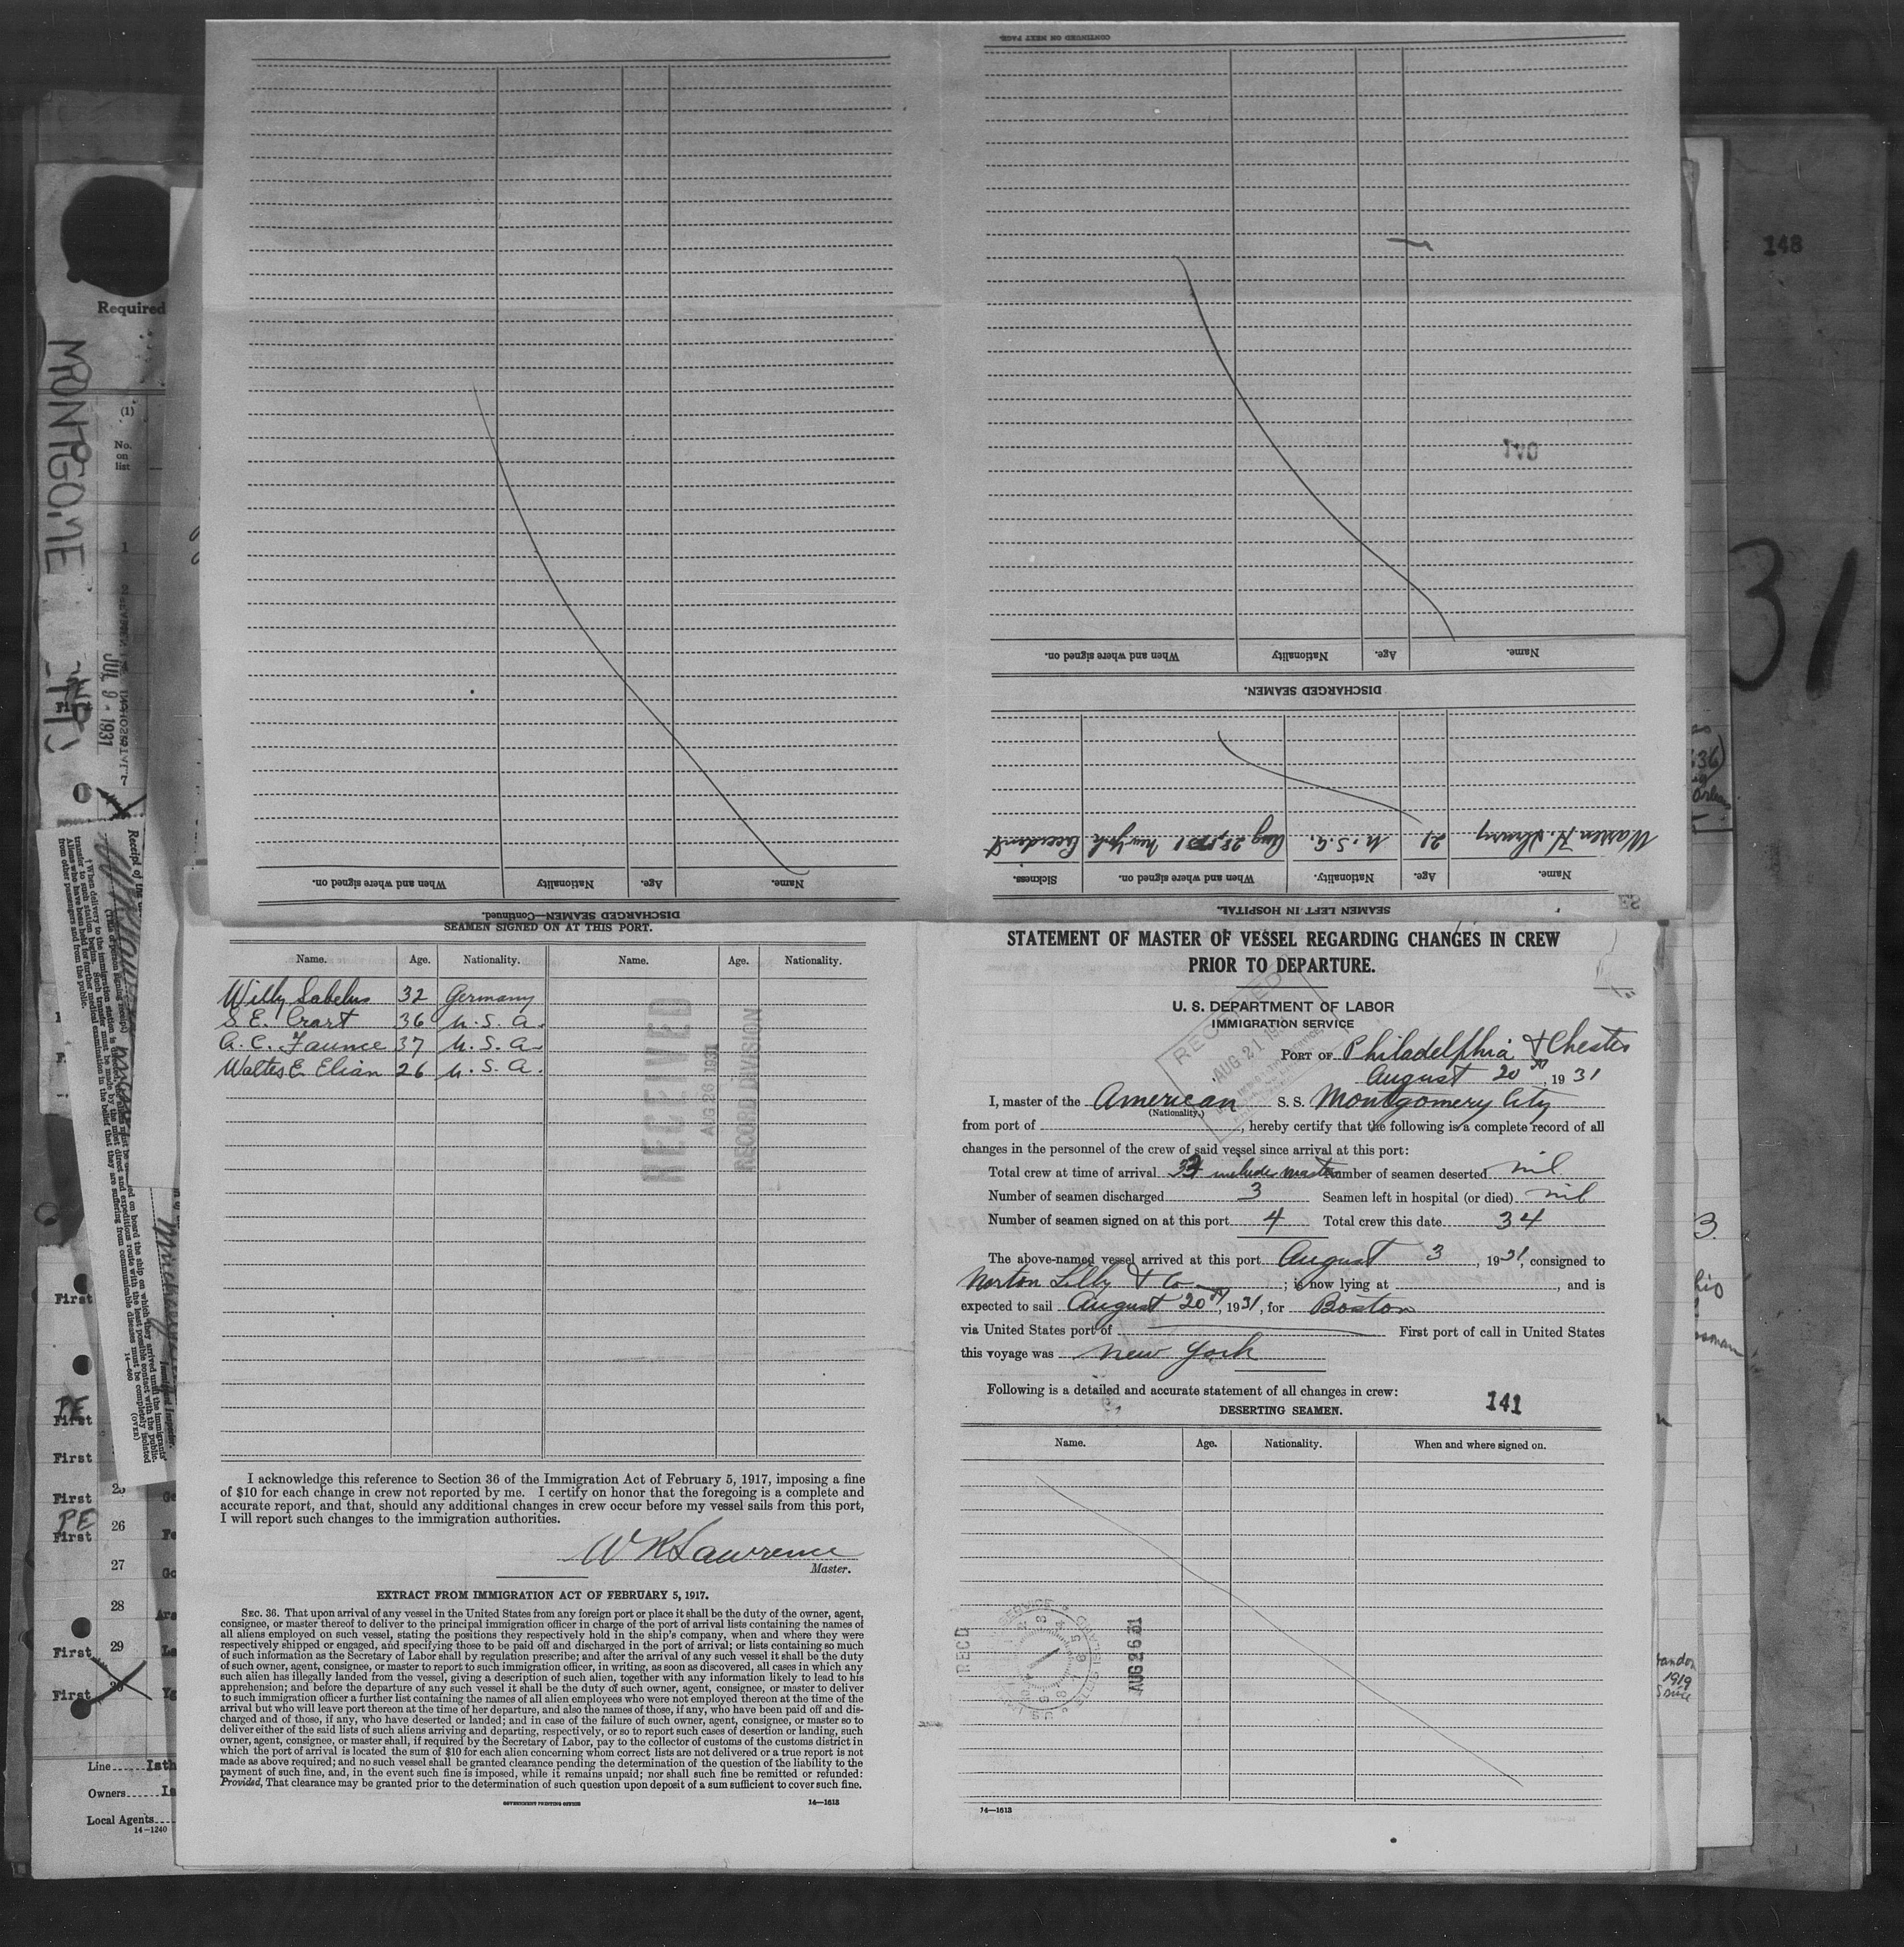 CONTINUED ON NEXT PAGE.
148
Required
(1)
No.
on
list
1
JUL 9 - 1931
31
OVI
Name.
Age.
Nationality
When and where signed on.
DISCHARGED SEAMEN.
Warren H.
21
U. S. A.
Aug 28, 1931 New York
Accident
Name.
Age.
Nationality.
When and where signed on.
Sickness.
SEAMEN LEFT IN HOSPITAL.
Name.
Age.
Nationality
When and where signed on.
DISCHARGED SEAMEN—Continued.
SEAMEN SIGNED ON AT THIS PORT.
Name. Age. Nationality. Name. Age. Nationality.
Willy Sabelus 32 Germany
S. E. Crart 36 U. S. A.
A. C. Faunce 37 U. S. A.
Walter E. Elian 26 U. S. A.
RECEIVED
AUG 26 1931
RECORD DIVISION
I acknowledge this reference to Section 36 of the Immigration Act of February 5, 1917, imposing a fine
of $10 for each change in crew not reported by me. I certify on honor that the foregoing is a complete and
accurate report, and that, should any additional changes in crew occur before my vessel sails from this port,
I will report such changes to the immigration authorities.
W R Lawrence
Master.
EXTRACT FROM IMMIGRATION ACT OF FEBRUARY 5, 1917.
SEC. 36. That upon arrival of any vessel in the United States from any foreign port or place it shall be the duty of the owner, agent,
consignee, or master thereof to deliver to the principal immigration officer in charge of the port of arrival lists containing the names of
all aliens employed on such vessel, stating the positions they respectively hold in the ship's company, when and where they were
respectively shipped or engaged, and specifying those to be paid off and discharged in the port of arrival; or lists containing so much
of such information as the Secretary of Labor shall by regulation prescribe; and after the arrival of any such vessel it shall be the duty
of such owner, agent, consignee, or master to report to such immigration officer, in writing, as soon as discovered, all cases in which any
such alien has illegally landed from the vessel, giving a description of such alien, together with any information likely to lead to his
apprehension; and before the departure of any such vessel it shall be the duty of such owner, agent, consignee, or master to deliver
to such immigration officer a further list containing the names of all alien employees who were not employed thereon at the time of the
arrival but who will leave port thereon at the time of her departure, and also the names of those, if any, who have been paid off and dis-
charged and of those, if any, who have deserted or landed; and in case of the failure of such owner, agent, consignee, or master so to
deliver either of the said lists of such aliens arriving and departing, respectively, or so to report such cases of desertion or landing, such
owner, agent, consignee, or master shall, if required by the Secretary of Labor, pay to the collector of customs of the customs district in
which the port of arrival is located the sum of $10 for each alien concerning whom correct lists are not delivered or a true report is not
made as above required; and no such vessel shall be granted clearance pending the determination of the question of the liability to the
payment of such fine, and, in the event such fine is imposed, while it remains unpaid; nor shall such fine be remitted or refunded:
Provided, That clearance may be granted prior to the determination of such question upon deposit of a sum sufficient to cover such fine.
GOVERNMENT PRINTING OFFICE
14—1613
STATEMENT OF MASTER OF VESSEL REGARDING CHANGES IN CREW
PRIOR TO DEPARTURE.
U. S. DEPARTMENT OF LABOR
IMMIGRATION SERVICE
RECEIVED
AUG 21 1931
PORT OF Philadelphia & Chester
August 20th, 1931
I, master of the American S. S. Montgomery City
(Nationality.)
from port of , hereby certify that the following is a complete record of all
changes in the personnel of the crew of said vessel since arrival at this port:
Total crew at time of arrival 33 includes master Number of seamen deserted nil
Number of seamen discharged 3 Seamen left in hospital (or died) nil
Number of seamen signed on at this port 4 Total crew this date 34
The above-named vessel arrived at this port August 3, 1931, consigned to
Norton Lilly & Co ; is now lying at , and is
expected to sail August 20th, 1931, for Boston
via United States port of First port of call in United States
this voyage was New York
Following is a detailed and accurate statement of all changes in crew:
141
DESERTING SEAMEN.
Name. Age. Nationality. When and where signed on.
REC'D
AUG 26 31
14—1613
First
First
First
First
PE
First
26
27
28
29
First
First
Line
Owners
Local Agents
14-1240